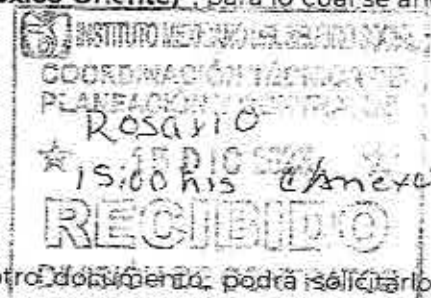 México Oriente)", para lo cual se
INSTITUTO MEXICANO DEL SEGURO SOCIAL
COORDINACIÓN TÉCNICA DE
PLANEACIÓN
Rosario
15 DIC
15:00 hrs c/Anexo
RECIBIDO
otro documento, podrá solicitarlo